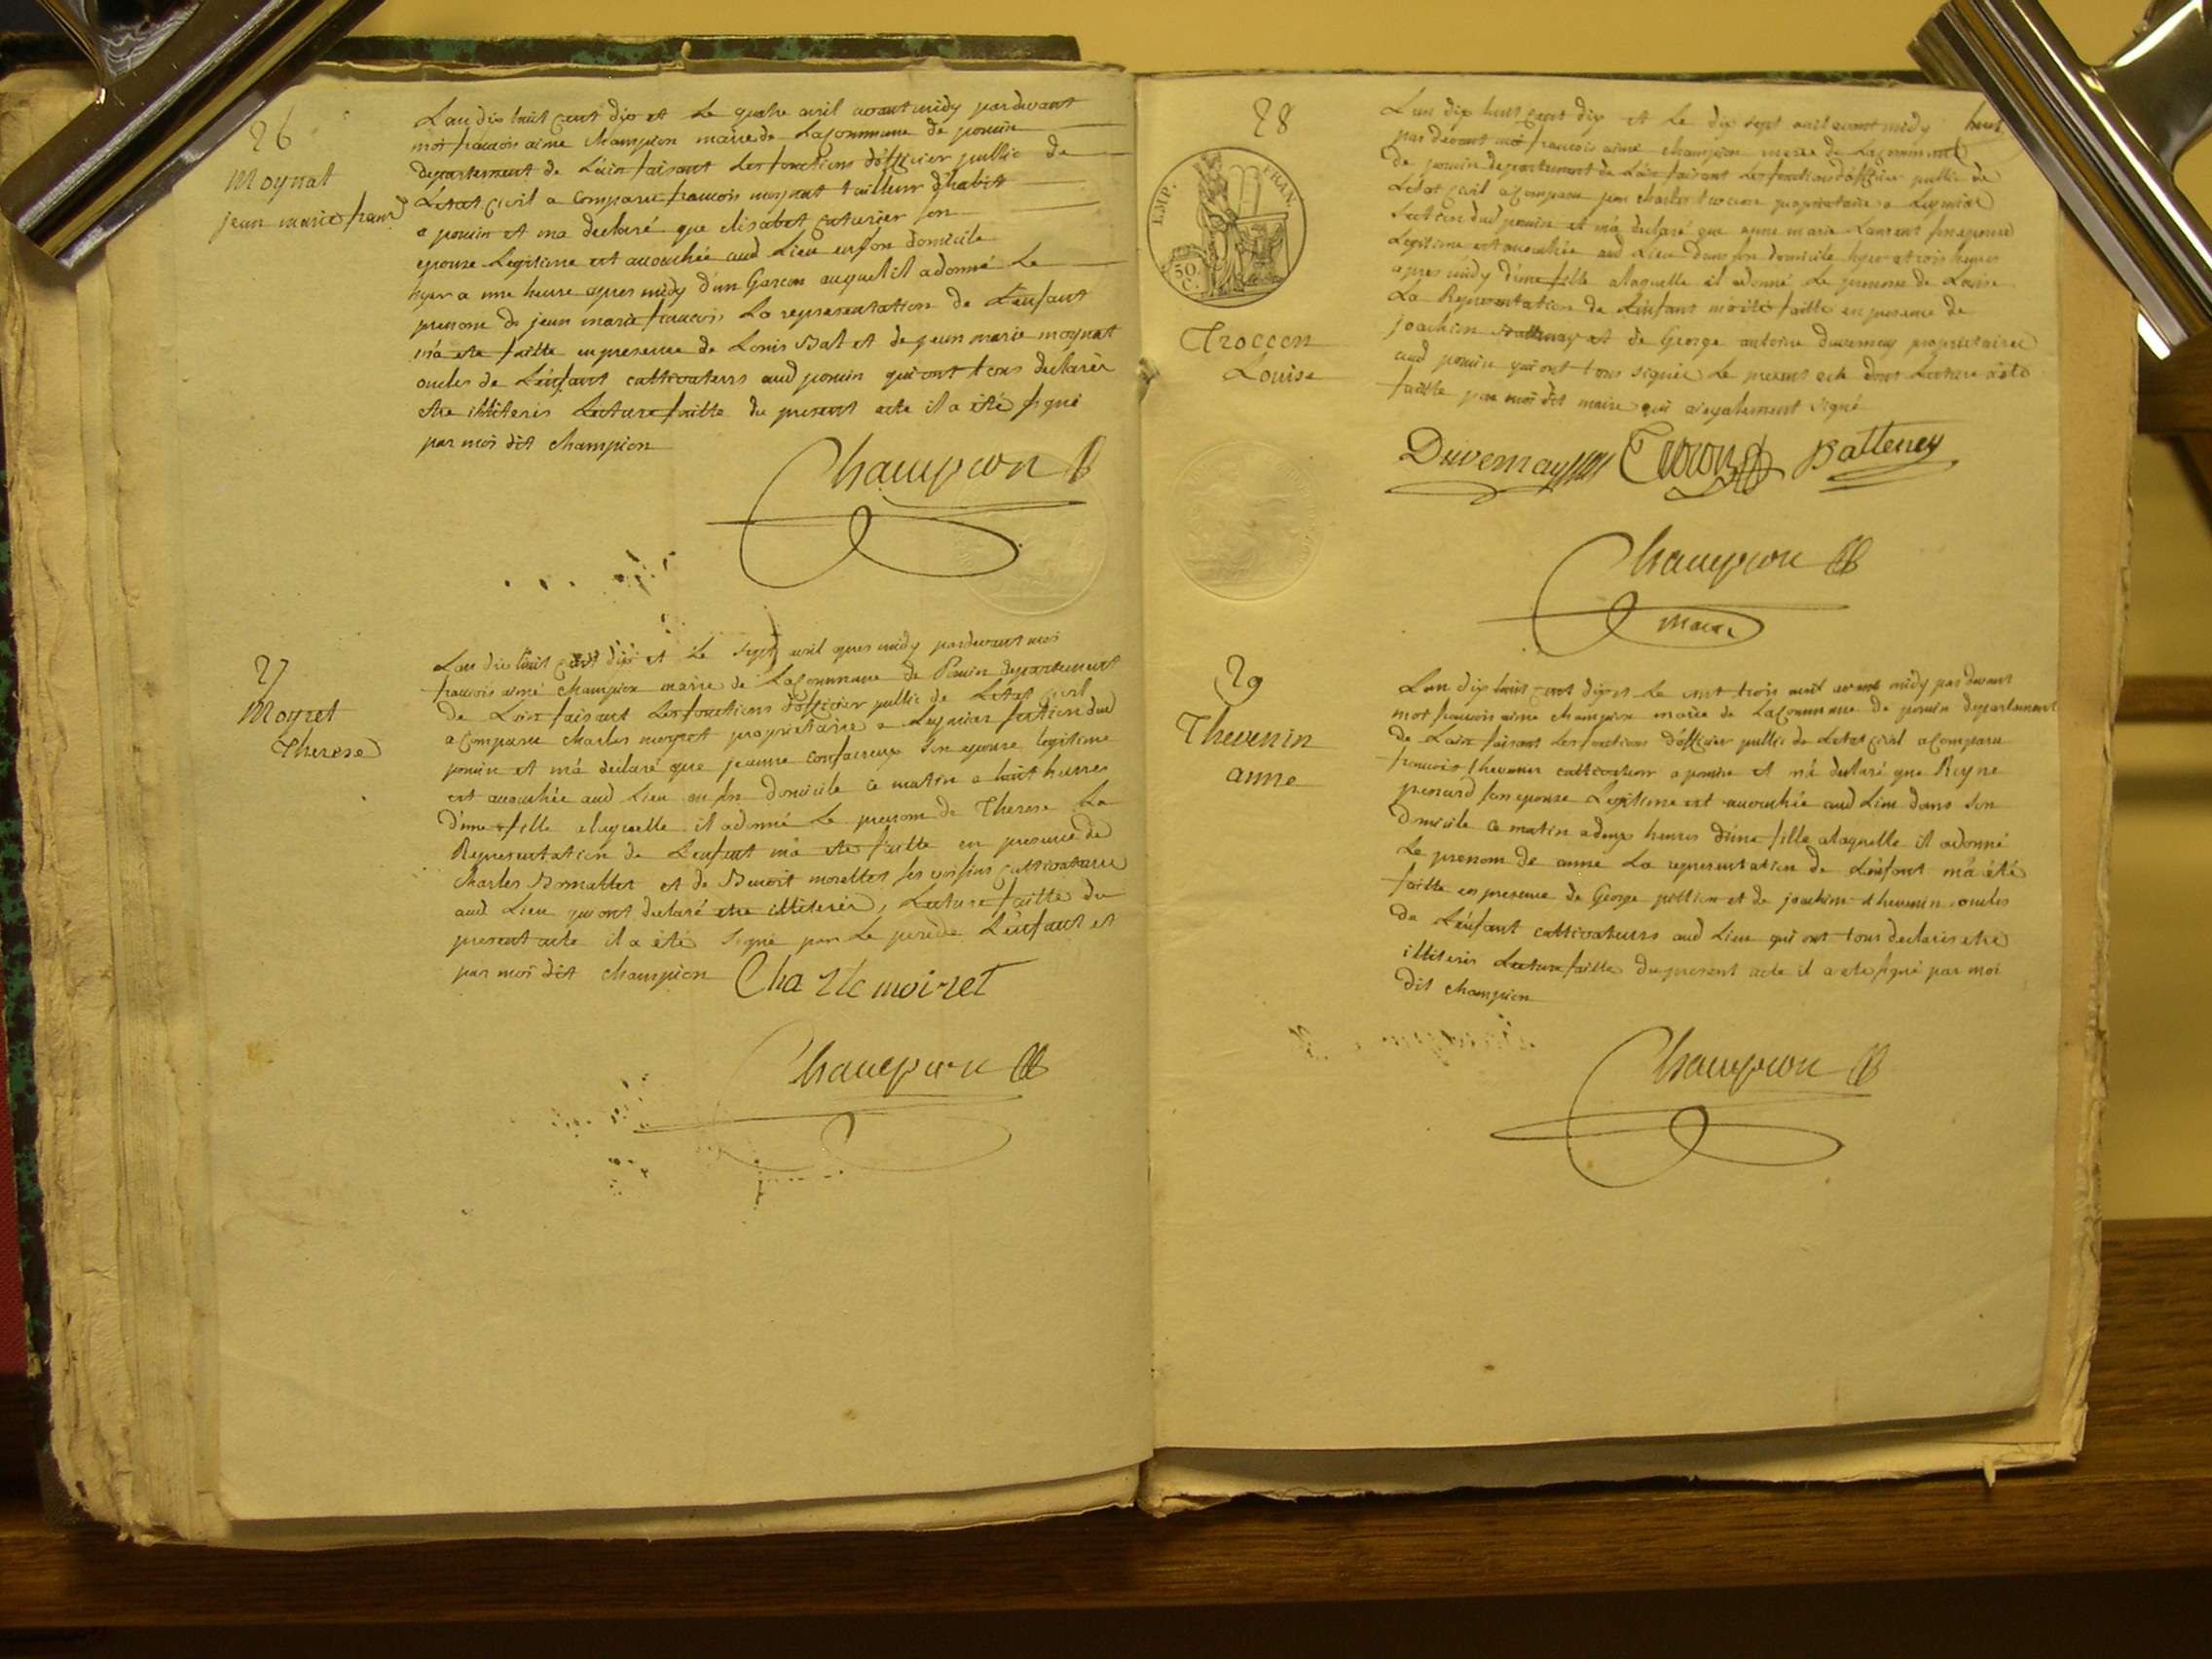 26
Moynat
jean marie franc
Lan dix huit cent dix et Le quatre avril avant midy pardevant
moi francois aimé champion maire de Lacommune de poncin
departement de Lain faisant Les fonctions d'officier public de
Letat civil a comparu francois moynat tailleur d'habit
a poncin et ma declaré que elisabet couturier son
epouse Legitime est accouchée aud Lieu en son domicile
hyer a une heure apres midy d'un Garcon auquel il a donné Le
prenom de jean marie francois La representation de L'enfant
m'a ete faitte en presence de Louis Bal et de jean marie moynat
oncles de L'enfant cultivateurs aud poncin qui ont tous declarés
etre illiterés Lecture faitte du present acte il a été signé
par moi dit champion
Champion
27
Moyret
Therese
Lan dix huit cent dix et Le sept avril apres midy pardevant moi
francois aimé champion maire de Lacommune de Poncin departement
de Lain faisant Les fonctions d'officier public de Letat civil
a comparu charles moyret proprietaire a section dud
poncin et m'a declaré que jeanne son epouse legitime
est accouchée aud Lieu en son domicile ce matin a huit heures
d'une fille a laquelle il a donné Le prenom de Therese La
Representation de L'enfant m'a ete faitte en presence de
charles et de Benoit ses voisins cultivateurs
aud Lieu qui ont declaré etre illiterés, Lecture faitte du
present acte il a été signé par Le pere de L'enfant et
par moi dit champion Charle moiret
Champion
28
EMP. FRAN.
50 C.
Troccon
Louise
Lan dix huit cent dix et Le dix sept avril avant midy
par devant moi francois aimé champion maire de Lacommune
de poncin departement de Lain faisant Les fonctions d'officier public de
Letat civil a comparu jean charles troccon proprietaire a
section dud poncin et m'a declaré que anne marie Laurent son epouse
Legitime est accouchée aud Lieu dans son domicile hyer a trois heures
apres midy d'une fille a laquelle il a donné Le prenom de Louise
La Representation de L'enfant m'a eté faitte en presence de
joachim Battenay et de George antoine duvernay proprietaires
aud poncin qui ont tous signés Le present acte dont Lecture a ete
faitte par moi dit maire qui a egalement signé
Duvernay Troccon Batteney
Champion
Maire
29
Thevenin
anne
Lan dix huit cent dix et Le vint trois avril avant midy par devant
moi francois aimé champion maire de Lacommune de poncin departement
de Lain faisant Les fonctions d'officier public de Letat civil a comparu
francois thevenin cultivateur a poncin et m'a declaré que Reyne
penard son epouse Legitime est accouchée aud Lieu dans son
domicile ce matin a deux heures d'une fille a laquelle il a donné
Le prenom de anne La representation de L'enfant m'a été
faitte en presence de George et de joachim thevenin oncles
de L'enfant cultivateurs aud Lieu qui ont tous declarés etre
illiterés Lecture faitte du present acte il a ete signé par moi
dit champion
Champion